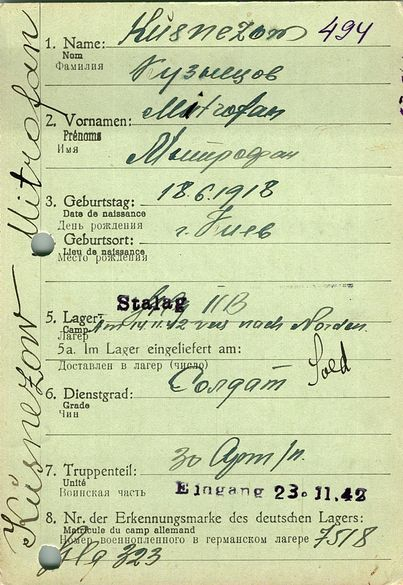 1. Name: Kusnezow 494
Nom
Фамилия Кузнецов
2. Vornamen: Mitrofan
Prénoms
Имя Митрофан
3. Geburtstag: 18.6.1918
Date de naissance
День рождения
Geburtsort: г. Киев
Lieu de naissance
Место рождения
Stalag IIB
5. Lager:
Camp Am 14.11.42 vers nach Norden.
Лагерь
5a. Im Lager eingeliefert am:
Доставлен в лагерь (число)
6. Dienstgrad: Солдат Sold
Grade
Чин
7. Truppenteil: 30 Арт/п.
Unité
Воинская часть Eingang 23.11.42
8. Nr. der Erkennungsmarke des deutschen Lagers:
Matricule du camp allemand
Номер военнопленного в германском лагере 7518
323
Kusnezow Mitrofan